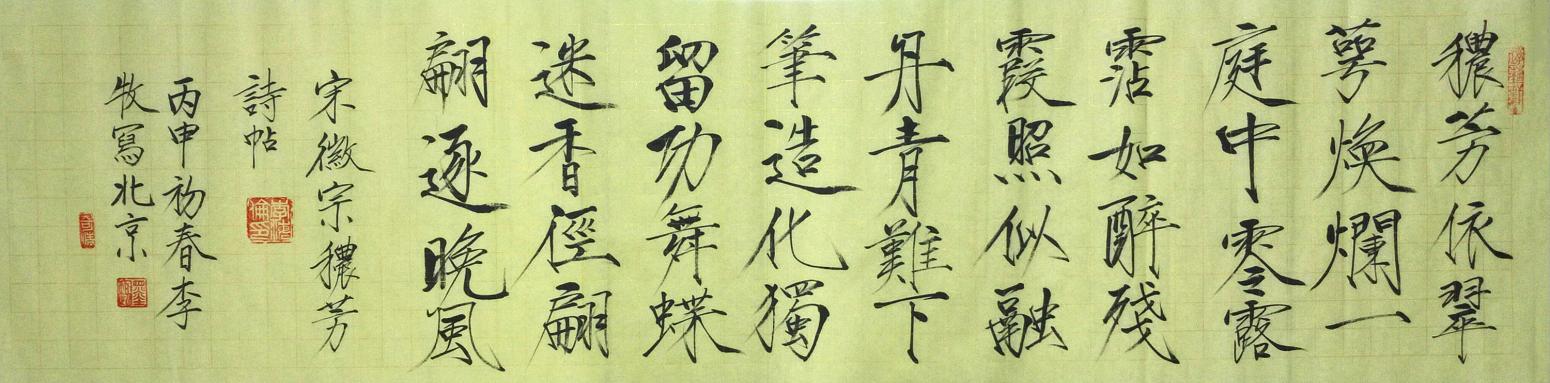 穠芳依翠
萼煥爛一
庭中零露
霑如醉殘
霞照似融
丹青難下
筆造化獨
留功舞蝶
迷香徑翩
翩逐晚風
宋徽宗穠芳
詩帖
丙申初春李
牧寫北京